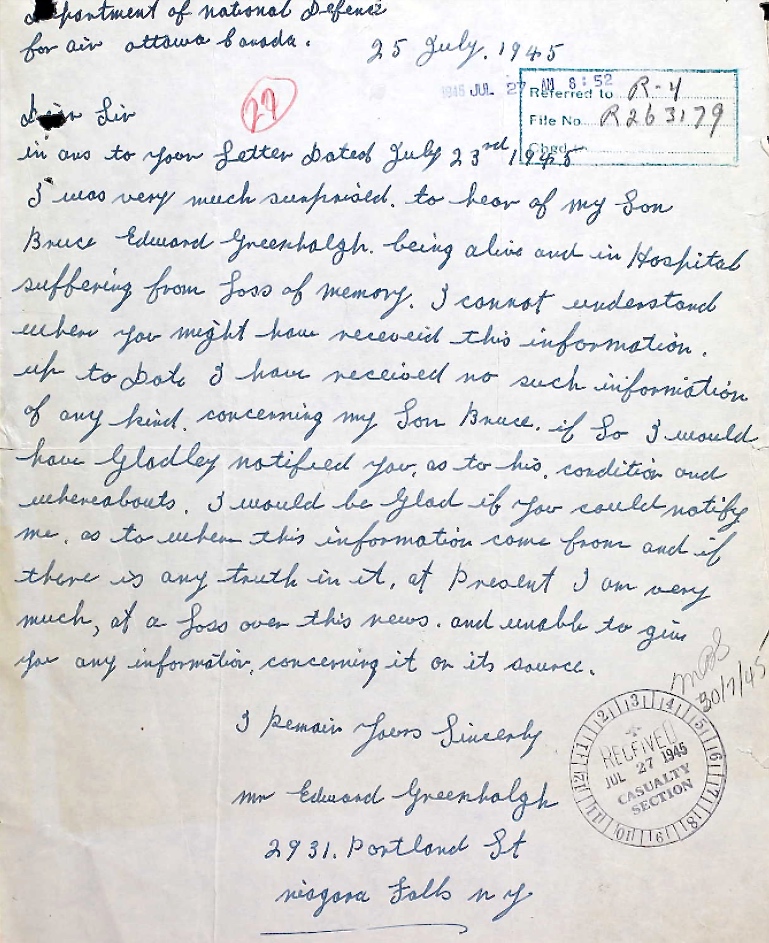 Department of national Defence
for air ottawa Canada.
25 July. 1945
1945 JUL 27 AM 8:52
Referred to R-4
File No. R263179
Chgd to
27
Dear Sir
in ans to your Letter Dated July 23rd 1945
I was very much surprised. to hear of my Son
Bruce Edward Greenhalgh. being alive and in Hospital
suffering from Loss of memory. I cannot understand
where you might have receveid this information.
up to Date I have received no such information
of any kind. concerning my Son Bruce. if So I would
have Gladley notified you, as to his, condition and
whereabouts. I would be Glad if you could notify
me. as to where this information come from and if
there is any truth in it, at Present I am very
much, at a Loss over this news. and unable to give
you any information, concerning it or its source.
30/7/45
I Remain Yours Sincerly
RECEIVED
JUL 27 1945
CASUALTY
SECTION
1 2 3 4 5 6 7 8 9 10 11 12
mr Edward Greenhalgh
2931. Portland St
niagara Falls n y